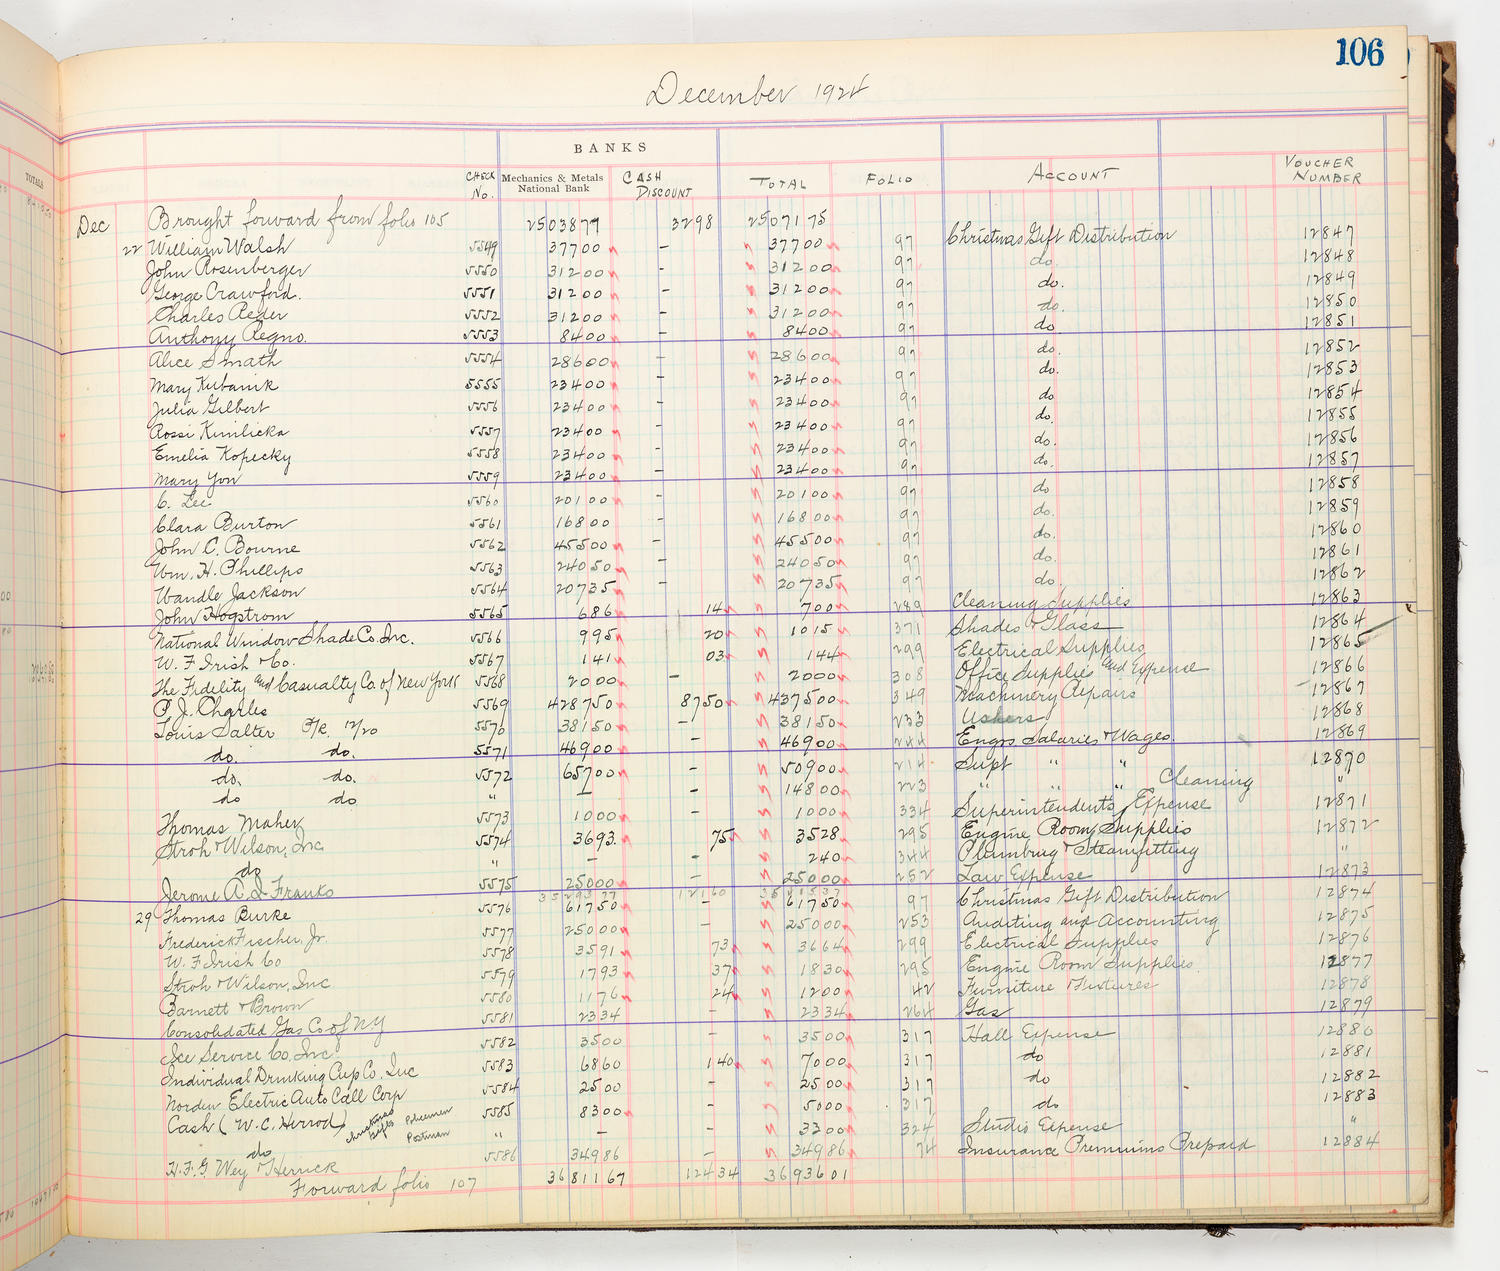 106
December 1924
BANKS
CHECK No. Mechanics & Metals National Bank CASH DISCOUNT TOTAL FOLIO ACCOUNT VOUCHER NUMBER
TOTALS
Dec Brought forward from folio 105 2503877 3298 2507175
22 William Walsh 5549 37700 - 37700 97 Christmas Gift Distribution 12847
John Rosenberger 5550 31200 - 31200 97 do. 12848
George Crawford. 5551 31200 - 31200 97 do. 12849
Charles Reder 5552 31200 - 31200 97 do. 12850
Anthony Regno. 5553 8400 - 8400 97 do 12851
Alice Smath 5554 28600 - 28600 97 do. 12852
Mary Kubanik 5555 23400 - 23400 97 do. 12853
Julia Gilbert 5556 23400 - 23400 97 do 12854
Rossi Kimlicka 5557 23400 - 23400 97 do. 12855
Emelia Kopecky 5558 23400 - 23400 97 do. 12856
Mary Yon 5559 23400 - 23400 97 do. 12857
C. Lee 5560 20100 - 20100 97 do 12858
Clara Burton 5561 16800 - 16800 97 do. 12859
John C. Bourne 5562 45500 - 45500 97 do. 12860
Wm. H. Phillips 5563 24050 - 24050 97 do. 12861
Wandle Jackson 5564 20735 - 20735 97 do. 12862
John Hogstrom 5565 686 14 700 289 Cleaning Supplies 12863
National Window Shade Co. Inc. 5566 995 20 1015 371 Shades & Glass 12864
W. F Irish & Co. 5567 141 03 144 299 Electrical Supplies 12865
The Fidelity and Casualty Co. of New York 5568 2000 - 2000 308 Office Supplies and Expense 12866
P. J. Charles 5569 428750 8750 437500 349 Machinery Repairs 12867
Louis Salter P/R 12/20 5570 38150 - 38150 233 Ushers 12868
do. do. 5571 46900 - 46900 244 Engrs Salaries & Wages. 12869
do. do. 5572 65700 - 50900 214 Supt " " 12870
do do " - - 14800 223 " " " Cleaning "
Thomas Maher 5573 1000 - 1000 334 Superintendent's Expense 12871
Stroh & Wilson, Inc 5574 3693. 75 3528 295 Engine Room Supplies 12872
do " - - 240 344 Plumbing & Steamfitting "
Jerome A. Q Franks 5575 25000 - 25000 252 Law Expense 12873
3529377 12160 3541537
29 Thomas Burke 5576 61750 - 61750 97 Christmas Gift Distribution 12874
Frederick Fischer, Jr. 5577 25000 - 25000 253 Auditing and Accounting 12875
W. F Irish Co 5578 3591 73 3664 299 Electrical Supplies 12876
Stroh & Wilson, Inc 5579 1793 37 1830 295 Engine Room Supplies. 12877
Barnett & Brown 5580 1176 24 1200 42 Furniture & Fixtures 12878
Consolidated Gas Co of NY 5581 2334 - 2334 264 Gas 12879
Ice Service Co, Inc. 5582 3500 - 3500 317 Hall Expense 12880
Individual Drinking Cup Co., Inc 5583 6860 140 7000 317 do 12881
Norden Electric Auto Call Corp 5584 2500 - 2500 317 do 12882
Cash (W. C. Herrod) Christmas Gifts Policemen 5585 8300 - 5000 317 do 12883
Postman " - - 3300 324 Studio Expense "
do
H. F. G. Wey & Herrick 5586 34986 - 34986 74 Insurance Premiums Prepaid 12884
Forward folio 107 3681167 12434 3693601